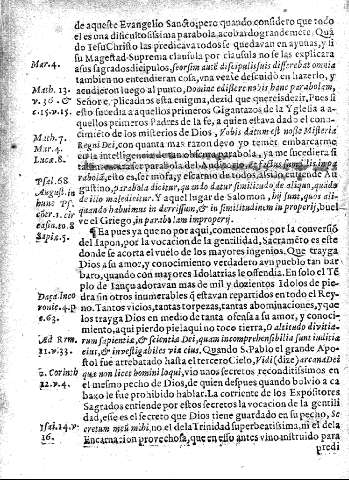 de aqueste Evangelio Sancto; pero quando considero que todo
el es una dificultosissima parabola, acobardo grandemete. Quã
do Jesu Christo las predicava todos se quedavan en ayunas, y si
su Magestad Suprema clausula por clausula no se las explicara
Mar. 4. a sus sagrados dicipulos, seorsim autẽ discipulis suis differebat omnia
tambien no entendieran cosa, una vez se descuidó en hazerlo, y
Math. 13. acudieron luego al punto, Domine edissere nobis hanc parabolam,
v. 36. & Señor explicadnos esta enigma, dezid que quereis dezir, Pues si
c. 15. v. 15. esto sucedia a aquellos primeros Gigantazos de la Yglesia a a-
quellos primeros Padres de la fe, a quien estava dado el cono-
cimiẽto de los misterios de Dios, Vobis datum est nosse Misteria
Math. 7. Regni Dei, con quanta mas razon devo yo temer embarcarme
Mar. 4. en la inteligencia de una obscura parabola, ya me sucediera si
Lucæ. 8. parabola del
parabolã, esto es, de mofa, y escarnio de todos, assi lo entiende Au
Psal. 68 gustino, parabola dicitur, quando datur similitudo de aliquo, quãdo
August. in de illo maledicitur. Y aquel lugar de Salomon, hij sunt, quos ali-
hunc Ps. quando habuimus in derrisum, & in similitudinem improperij, buel
ve el Griego, in parabolam improperij.
Sapiẽ. 5. ¶ Ea pues ya que no por aqui, comencemos por la conversió
del Iapon, por la vocacion de la gentilidad, Sacramẽto es este
donde se acorta el vuelo de los mayores ingenios. Que trayga
Dios a su amor, y conocimiento verdadero a un pueblo tan bar
baro, quando con mayores Idolatrias le offendia. En solo el Tẽ
plo de Iançu adoravan mas de mil y dozientos Idolos de pie
dra sin otros inumerables q̃ estavan repartidos en todo el Rey-
no. Tantos vicios, tantas torpezas, tantas abominaciones, y q̃ se
v. 63. los trayga Dios en medio de tanta ofensa a su amor, y conoci-
miento, aqui pierdo pie laqui no toco tierra, O altitudo divitia-
Ad Rom. rum sapientiæ, & scientiæ Dei, quam incomprehensibilia sunt iuditia
11. v. 33. eius, & investigabiles viæ eius, Quando S. Pablo el grande Apo-
stol fue arrebatado hasta el tercero Cielo, Vidi (dize) arcana Dei
2. Corinth que non licet homini loqui, vio unos secretos reconditissimos en
12. v. 4. el mesmo pecho de Dios, de quien despues quando bolvio a ca
bo se le fue prohibido hablar. La corriente de los Expositores
Sagrados entiende por estos secretos la vocacion de la gentili
dad, esse es el secreto que Dios tiene guardado en su pecho, Se
Ysai. 24. v. cretum meũ mihi, no el de la Trinidad superbeatissima, ni el de la
16. Encarnacion provechosa, que en esso antes vino instruido para
predi